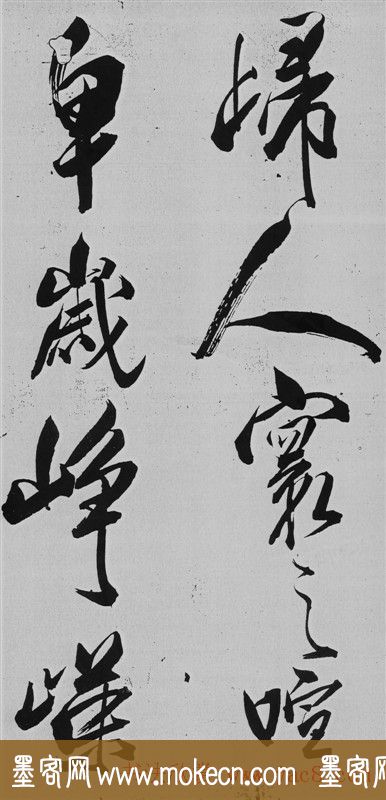 歸人寰之喧
卑歲崢嶸
墨客网 www.mokecn.com 墨客网